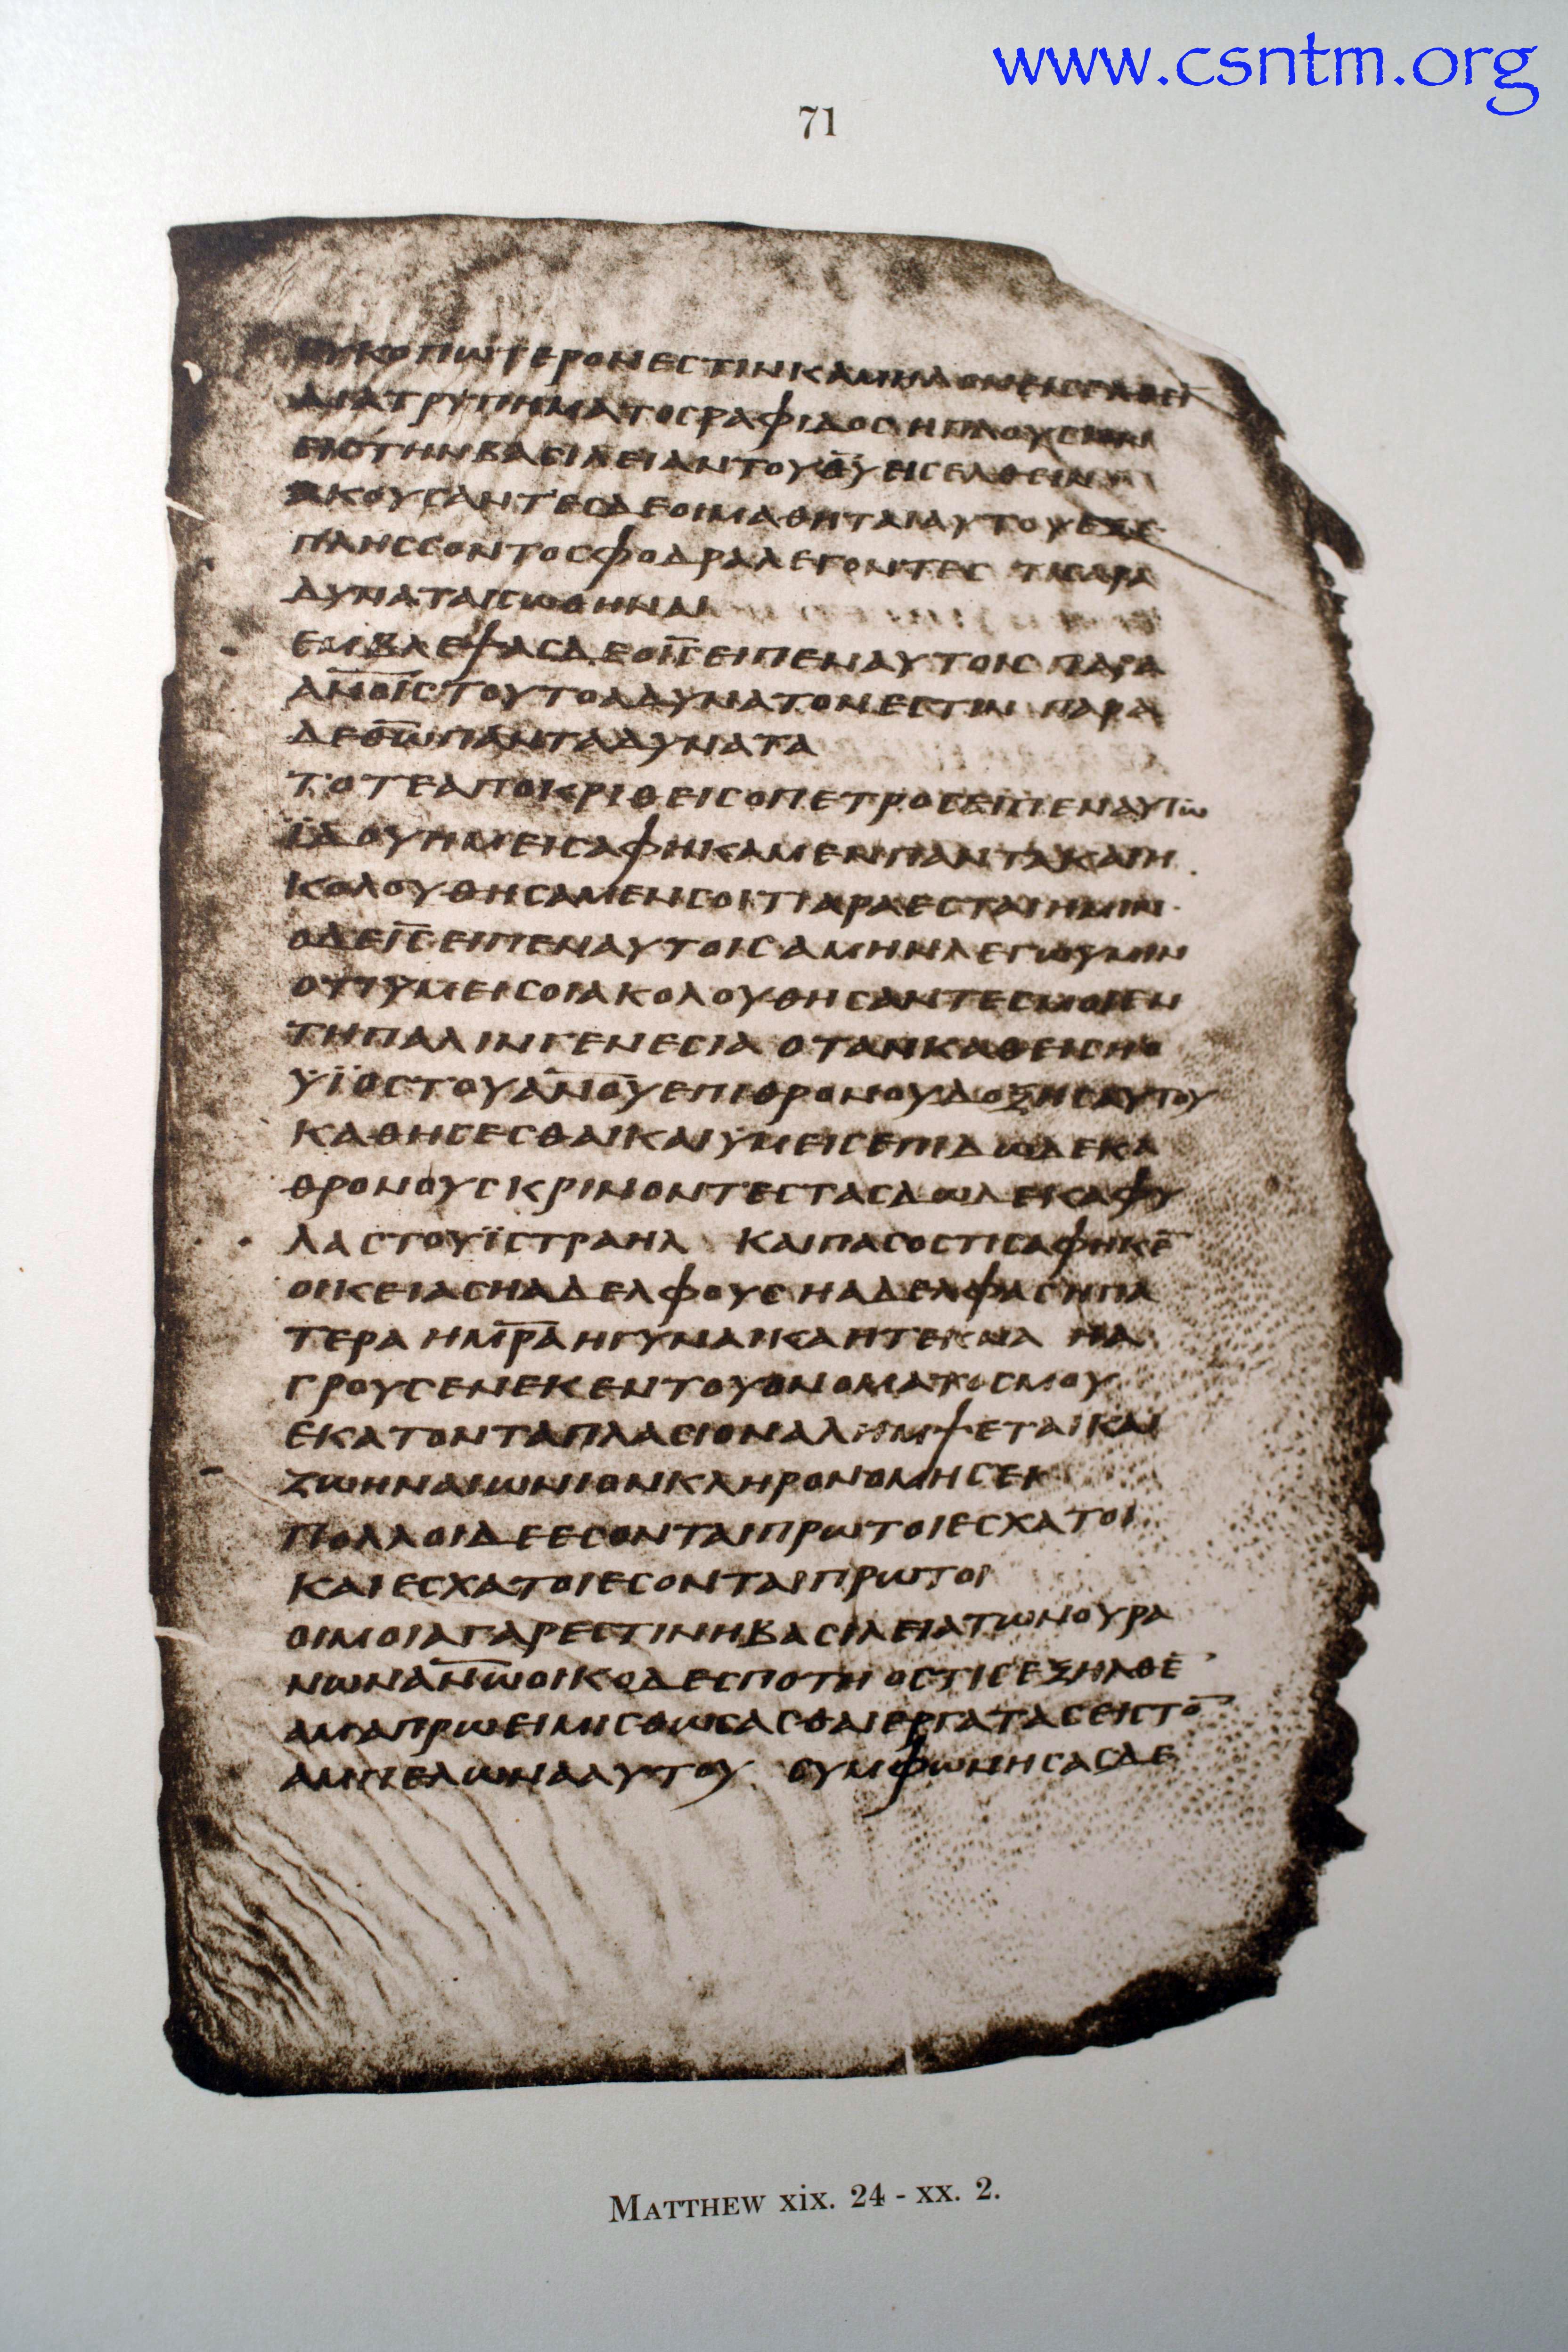 www.csntm.org
71
ΕΥΚΟΠΩΤΕΡΟΝΕϹΤΙΝΚΑΜΗΛΟΝΕΙϹΕΛΘΕΙ
ΔΙΑΤΡΥΠΗΜΑΤΟϹΡΑΦΙΔΟϹΗΠΛΟΥϹΙΟΝ
ΕΙϹΤΗΝΒΑϹΙΛΕΙΑΝΤΟΥΘ̅Υ̅ΕΙϹΕΛΘΕΙΝ
ΑΚΟΥϹΑΝΤΕϹΔΕΟΙΜΑΘΗΤΑΙΑΥΤΟΥΕΞΕ
ΠΛΗϹϹΟΝΤΟϹΦΟΔΡΑΛΕΓΟΝΤΕϹ ΤΙϹΑΡΑ
ΔΥΝΑΤΑΙϹΩΘΗΝΑΙ
ΕΜΒΛΕΨΑϹΔΕΟΙ̅Ϲ̅ΕΙΠΕΝΑΥΤΟΙϹ ΠΑΡΑ
ΑΝ̅Ο̅Ι̅Ϲ̅ΤΟΥΤΟΑΔΥΝΑΤΟΝΕϹΤΙΝ ΠΑΡΑ
ΔΕΘ̅Ω̅ΠΑΝΤΑΔΥΝΑΤΑ
ΤΟΤΕΑΠΟΚΡΙΘΕΙϹΟΠΕΤΡΟϹΕΙΠΕΝΑΥΤΩ
ΪΔΟΥΗΜΕΙϹΑΦΗΚΑΜΕΝΠΑΝΤΑΚΑΙΗ
ΚΟΛΟΥΘΗϹΑΜΕΝϹΟΙΤΙΑΡΑΕϹΤΑΙΗΜΙΝ
ΟΔΕΙ̅Ϲ̅ΕΙΠΕΝΑΥΤΟΙϹΑΜΗΝΛΕΓΩΥΜΙΝ
ΟΤΙΥΜΕΙϹΟΙΑΚΟΛΟΥΘΗϹΑΝΤΕϹΜΟΙΕΝ
ΤΗΠΑΛΙΝΓΕΝΕϹΙΑ ΟΤΑΝΚΑΘΕΙϹΗΟ
ΥΪΟϹΤΟΥΑ̅Ν̅Ο̅Υ̅ΕΠΙΘΡΟΝΟΥΔΟΞΗϹΑΥΤΟΥ
ΚΑΘΗϹΕϹΘΑΙΚΑΙΥΜΕΙϹΕΠΙΔΩΔΕΚΑ
ΘΡΟΝΟΥϹΚΡΙΝΟΝΤΕϹΤΑϹΔΩΔΕΚΑΦΥ
ΛΑϹΤΟΥΪϹΤΡΑΗΛ ΚΑΙΠΑϹΟϹΤΙϹΑΦΗΚΕ̅
ΟΙΚΕΙΑϹΗΑΔΕΛΦΟΥϹΗΑΔΕΛΦΑϹΗΠΑ
ΤΕΡΑΗΜ̅Ρ̅Α̅ΗΓΥΝΑΙΚΑΗΤΕΚΝΑ ΗΑ
ΓΡΟΥϹΕΝΕΚΕΝΤΟΥΟΝΟΜΑΤΟϹΜΟΥ
ΕΚΑΤΟΝΤΑΠΛΑϹΙΟΝΑΛΗΜΨΕΤΑΙΚΑΙ
ΖΩΗΝΑΙΩΝΙΟΝΚΛΗΡΟΝΟΜΗϹΕΙ
ΠΟΛΛΟΙΔΕΕϹΟΝΤΑΙΠΡΩΤΟΙΕϹΧΑΤΟΙ
ΚΑΙΕϹΧΑΤΟΙΕϹΟΝΤΑΙΠΡΩΤΟΙ
ΟΙΜΟΙΑΓΑΡΕϹΤΙΝΗΒΑϹΙΛΕΙΑΤΩΝΟΥΡΑ
ΝΩΝΑ̅Ν̅Ω̅ΟΙΚΟΔΕϹΠΟΤΗ ΟϹΤΙϹΕΞΗΛΘΕ̅
ΑΜΑΠΡΩΕΙΜΙϹΘΩϹΑϹΘΑΙΕΡΓΑΤΑϹΕΙϹΤΟ̅
ΑΜΠΕΛΩΝΑΑΥΤΟΥ ϹΥΜΦΩΝΗϹΑϹΔΕ
MATTHEW xix. 24 - xx. 2.